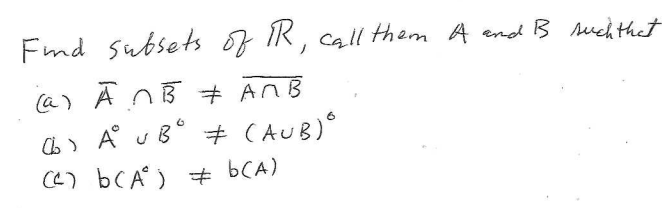 Find subsets of ℝ, call them A and B such that
(a) A̅ ∩ B̅ ≠ A̅∩̅B̅
(b) A° ∪ B° ≠ (A∪B)°
(c) b(A°) ≠ b(A)